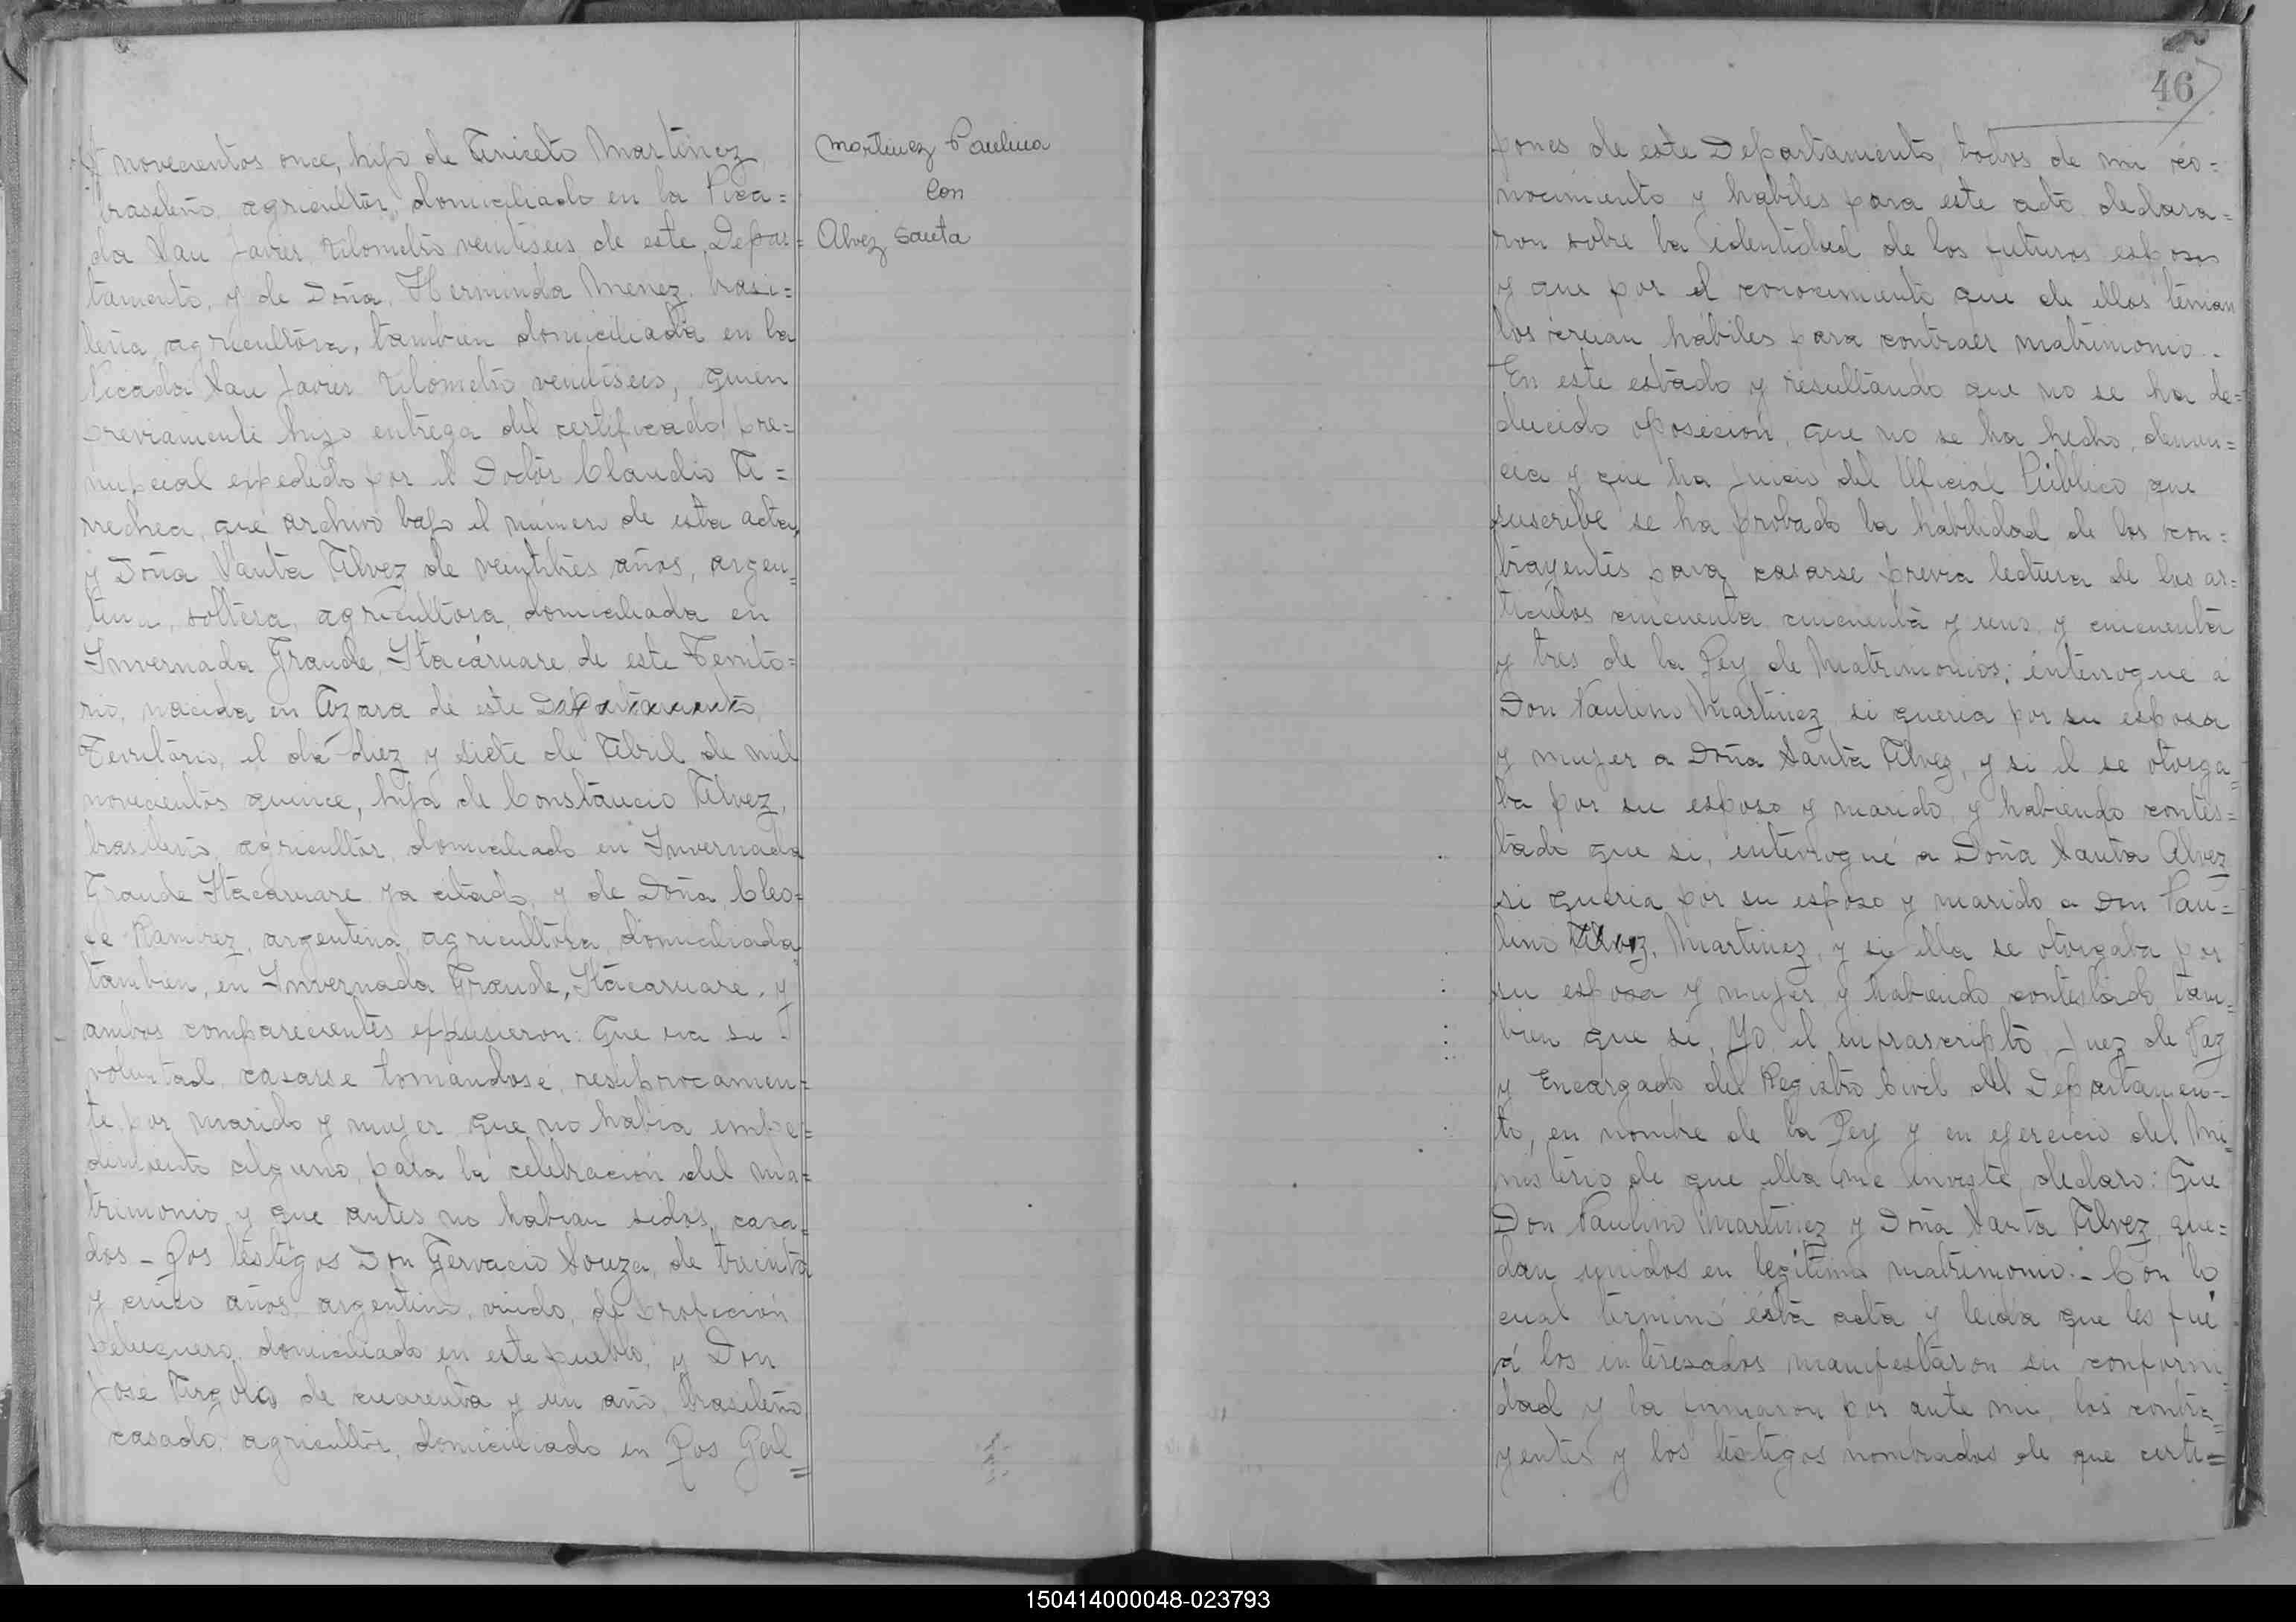 novecientos once, hijo de Aniceto Martinez,
brasileño, agricultor, domiciliado en la Pica=
da San Javier, kilometro veintiseis de este Depar=
tamento, y de Doña Herminda Menez, brasi=
leña, agricultora, tambien domiciliada en la
Picada San Javier kilometro veintiseis, quien
previamente hizo entrega del certificado pre=
nupcial expedido por el Doctor Claudio A=
rrechea, que archivo bajo el número de esta acta,
y Doña Santa Alvez de veintitres años, argen=
tina, soltera, agricultora, domiciliada en
Invernada Grande, Itacáruare, de este Territo=
rio, nacida en Azara de este Departamento,
Territorio, el dia diez y siete de Abril de mil
novecientos quince, hija de Constancio Alvez,
brasileño, agricultor, domiciliado en Invernada
Grande Itacaruare ya citado, y de Doña Cleo=
ce Ramirez, argentina, agricultora, domiciliada
tambien, en Invernada Grande, Itacaruare, y
ambos comparecientes expusieron: Que era su
voluntad casarse tomandose, resiprocamen=
te por marido y mujer que no habia impe=
dimento alguno, para la celebración del ma=
trimonio y que antes no habian sidos, casa=
dos - Los testigos Don Gervacio Souza, de treinta
y cinco años, argentino, viudo, de profeción
peluquero, domiciliado en este pueblo, y Don
José Argolo de cuarenta y un año, brasileño,
casado, agricultor, domiciliado en Los Gal=
Martinez Paulino
Con
Alvez Santa
46
pones de este Departamento, todos de mi co=
nocimiento y habiles para este acto declara=
ron sobre la identidad de los futuros esposos
y que por el conocimiento que de ellos tenian
los creian hábiles para contraer matrimonio.
En este estado y resultando que no se ha de=
ducido oposición, que no se ha hecho, denun=
cia y que ha juicio del Oficial Público que
suscribe se ha probado la habilidad de los con=
trayentes para casarse prévia lectura de los ar=
ticulos cincuenta, cincuenta y uno, y cincuenta
y tres de la Ley de Matrimonios; interrogue á
Don Paulino Martinez, si queria por su esposa
y mujer a Doña Santa Alvez, y si el se otorga=
ba por su esposo y marido, y habiendo contes=
tado que si, interrogué a Doña Santa Alvez
si queria por su esposo y marido a Don Pau=
lino Alvez, Martinez, y si ella se otorgaba por
su esposa y mujer y habiendo contestado, tam=
bien que si, Yo el infrascripto Juez de Paz
y Encargado del Registro Civil del Departamen=
to, en nombre de la Ley y en ejercicio del Mi=
nisterio de que ella me inviste, declaro: Que
Don Paulino Martinez y Doña Santa Alvez, que=
dan unidos en legitimo matrimonio. - Con lo
cual terminó ésta acta y leida que les fué
á los interesados manifestaron su conformi=
dad y la firmaron por ante mi, los contra=
yentes y los testigos nombrados de que certi=
150414000048-023793